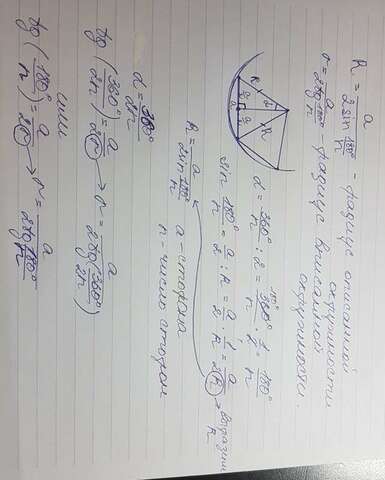 R = a/(2 sin 180°/n) - радиус описанной
окружности
r = a/(2 tg 180°/n) - радиус вписанной
окружности.
R
α
R
a/2
a/2
α = 360°/n : 2 = 360°/n · 1/2 = 180°/n
sin 180°/n = a/2 : R = a/2 · 1/R = a/(2R) → выразим
R
R = a/(2 sin 180°/n)
a - сторона
n - число сторон
α = 360°/2n
tg (360°/2n) = a/(2r) → r = a/(2 tg (360°/2n))
или
tg (180°/n) = a/(2r) → r = a/(2 tg 180°/n)